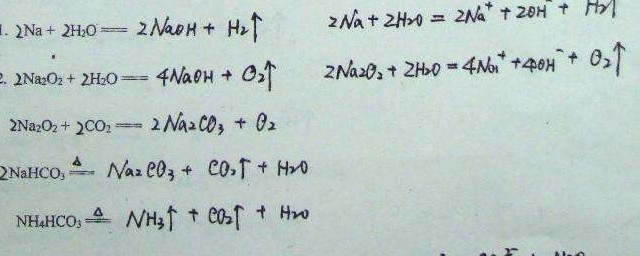 1. 2Na + 2H₂O == 2NaOH + H₂↑ 2Na + 2H₂O = 2Na⁺ + 2OH⁻ + H₂↑
2. 2Na₂O₂ + 2H₂O == 4NaOH + O₂↑ 2Na₂O₂ + 2H₂O = 4Na⁺ + 4OH⁻ + O₂↑
2Na₂O₂ + 2CO₂ == 2Na₂CO₃ + O₂
2NaHCO₃ =△= Na₂CO₃ + CO₂↑ + H₂O
NH₄HCO₃ =△= NH₃↑ + CO₂↑ + H₂O